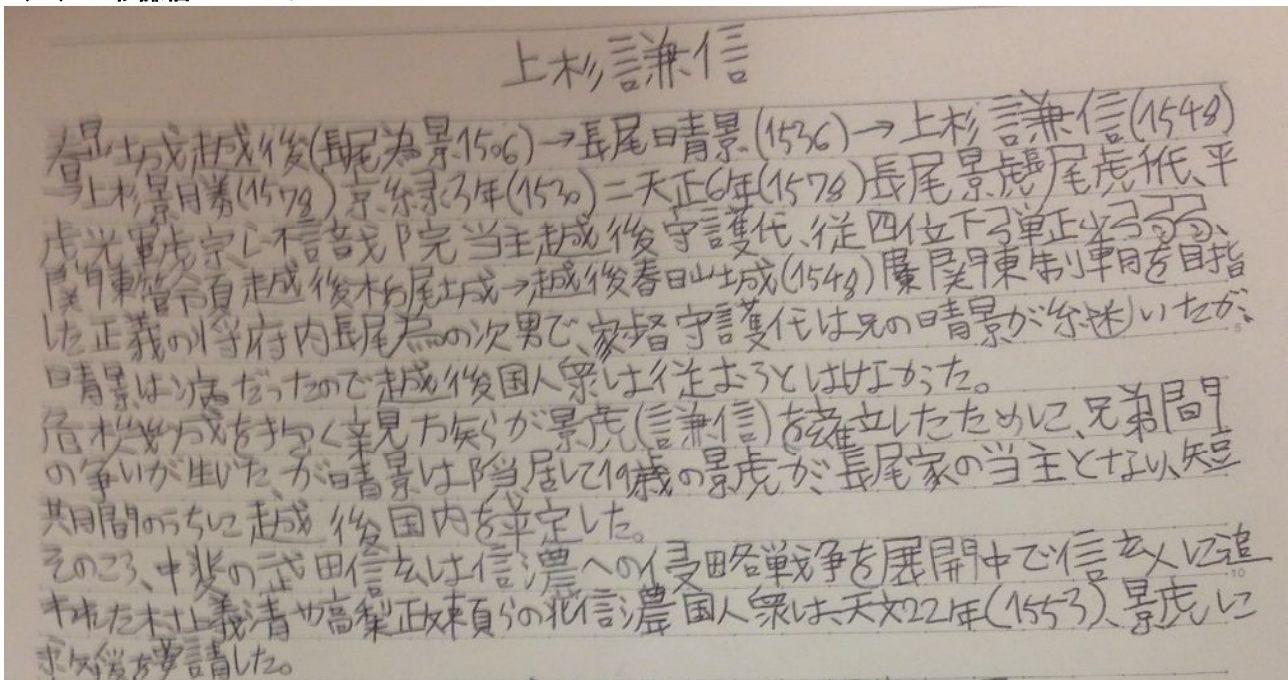 上杉謙信
春日山城越後(長尾為景1506)→長尾晴景(1536)→上杉謙信(1548)
→上杉景勝(1578)享禄3年(1530)=天正6年(1578)長尾景虎 尾虎千代、平
虎光軍虎宗心不識院 当主越後守護代、従四位下弾正少弼、
関東管領 越後栃尾城→越後春日山城(1548) 関東制覇を目指
した正義の将府内長尾為の次男で、家督守護代は兄の晴景が継いたが、
晴景は病だったので越後国人衆は従おうとはしなかった。
危機感を抱く親方矢らが景虎(謙信)を擁立したために、兄弟間
の争いが生じた、が晴景は隠居して19歳の景虎が、長尾家の当主となり、短
期間のうちに越後国内を平定した。
そのころ、甲斐の武田信玄は信濃への侵略戦争を展開中で信玄に追
われた村上義清や高梨政頼らの北信濃国人衆は、天文22年(1553)、景虎に
救援を要請した。